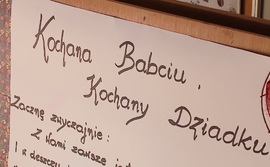 Kochana Babciu,
Kochany Dziadku
Zacznę zwyczajnie:
Z Nami zawsze
I w deszczu